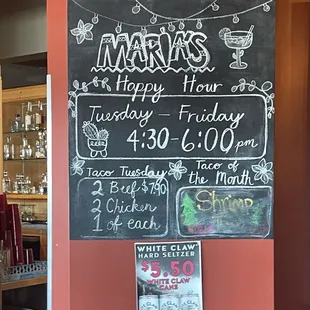 MARIA'S
Happy Hour
Tuesday - Friday
4:30-6:00pm
Taco Tuesday
2 Beef $7.90
2 Chicken
1 of each
Taco of
the Month
Shrimp
WHITE CLAW
HARD SELTZER
$5.50
WHITE CLAW
CANS